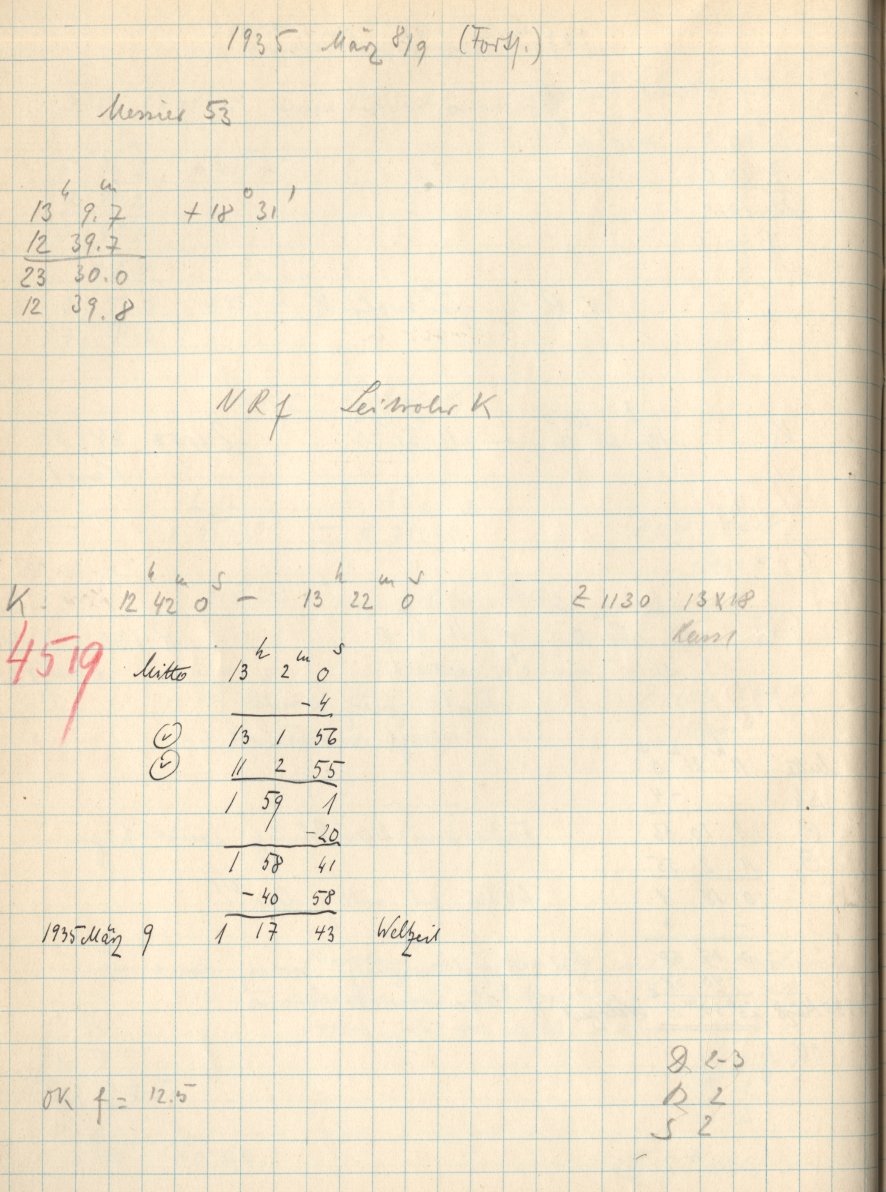 1935 März 8/9 (Forts.)
Messier 53
13h 9.7m +18° 31'
12 39.7
23 30.0
12 39.8
NRf Leitrohr K
K. 12h 42m 0s – 13h 22m 0s Z 1130 13x18
4519
Mitte 13h 2m 0s
-4
13 1 56
11 2 55
1 59 1
-20
1 58 41
-40 58
1935 März 9 1 17 43 Weltzeit
2-3
2
OK f = 12.5
S 2